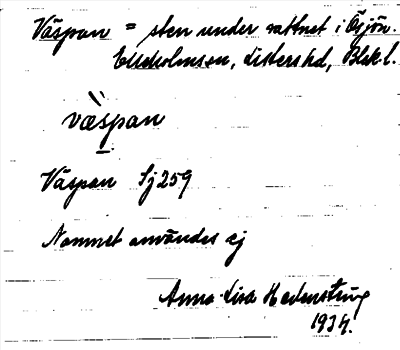 Väspan = sten under vattnet i Ösjön.
Elleholmssn, Listers hd, Blek. l.
vœspan
Väspan Sj 259
Namnet användes ej
Anna-Lisa Hedenstrug
1934.